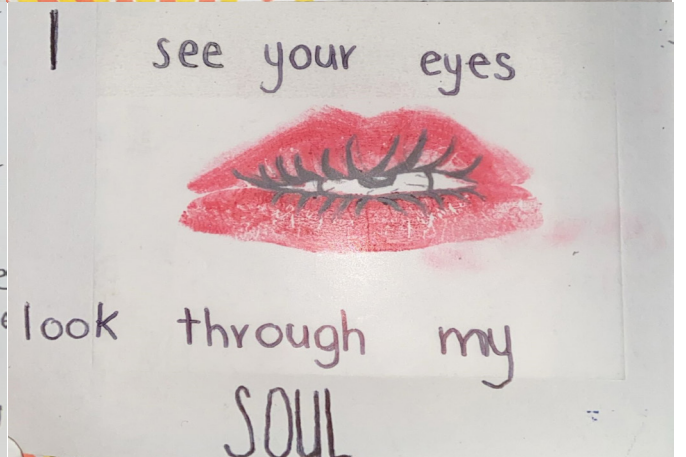 I see your eyes
look through my
SOUL